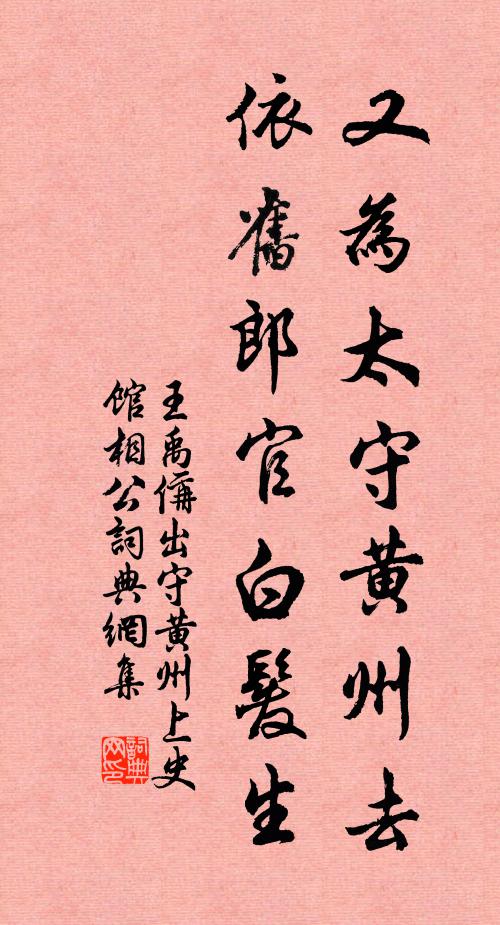 又為太守黄州去
依舊郎官白髮生
王禹偁出守黄州上史
館相公詞典網集
詞典
网印